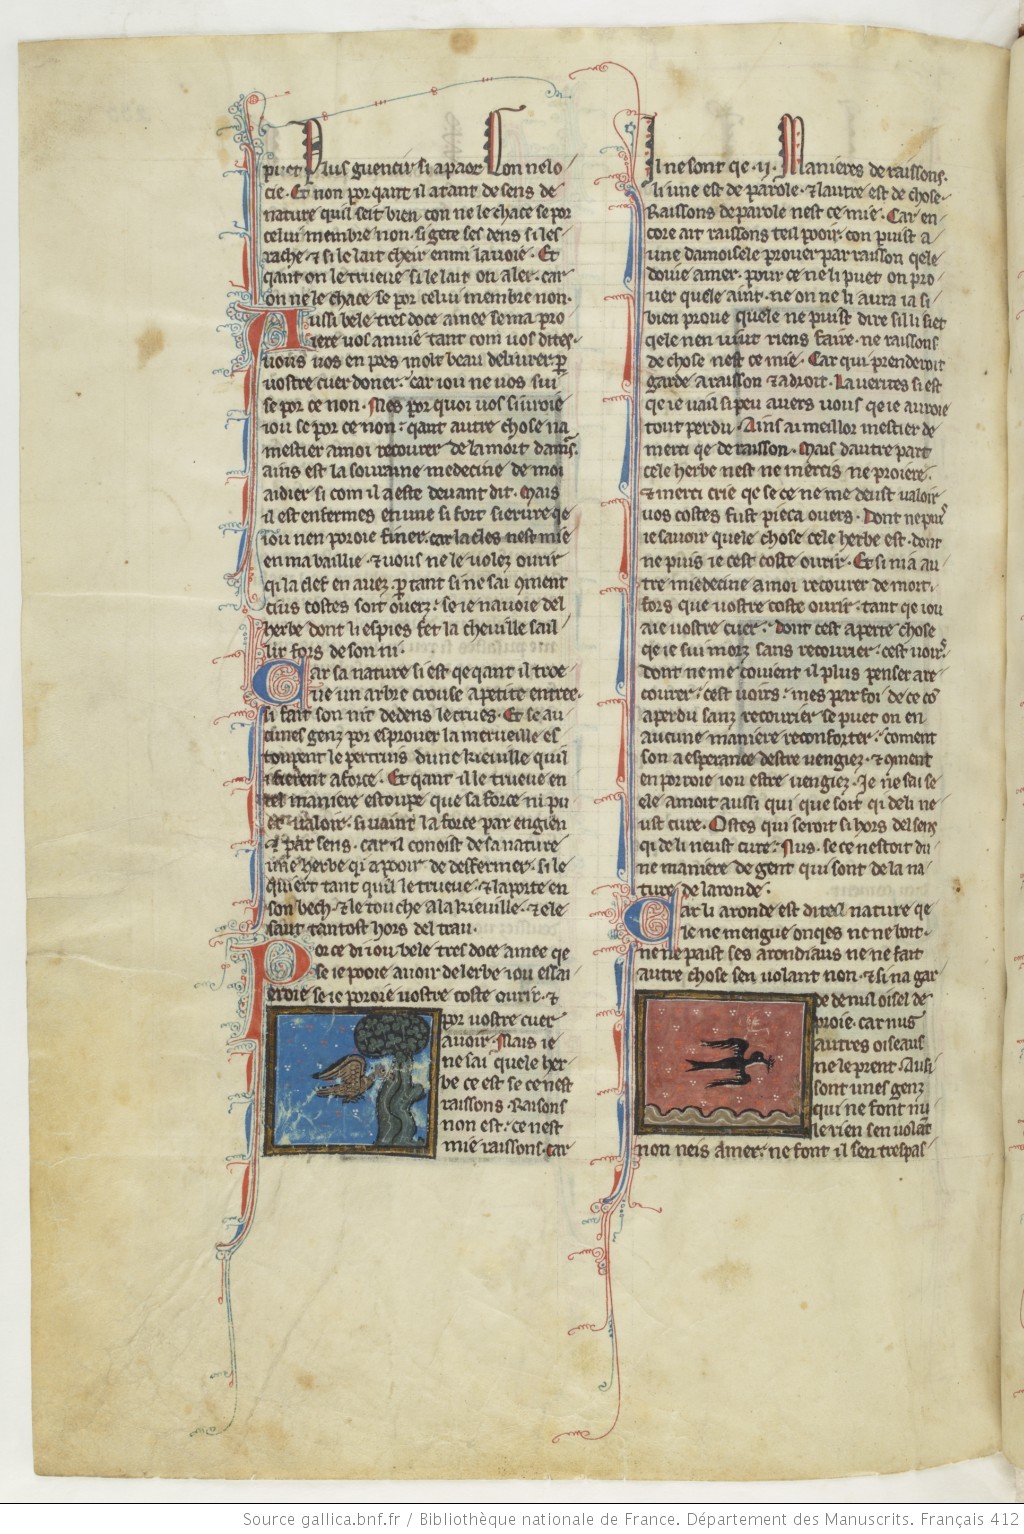 puet Plus guencir si a paor Lon nelo
cie. Et non por qant il a tant de sens de
nature quil seit bien con ne le chace se por
celui membre non. si gete ses dens si les
rache. ⁊ si le lait cheir enmi la uoie. Et
qant on le trueue si le lait on aler. car
on ne le chace se por celui membre non.
Aussi bele tres doce amee se ma pro
iere uos anuie tant com uos dites.
uous uos en poes molt beau deliurer ꝑ
uostre cuer doner. car iou ne uos sui
se por ce non. Mes por quoi uos siuroie
iou se por ce non. qant autre chose na
mestier a moi recourer de la mort damrs.
ains est la souraine medecine de moi
aidier si com il a este deuant dit. Mais
il est enfermes en une si fort sierure qe
iou nen poroie finer. car la cles nest mie
en ma baillie. ⁊ uous ne le uolez ourir
qi la clef en auez. ꝑ tant si ne sai 9ment
cius costes soit ouerz. se ie nauoie del
herbe dont li espies fet la cheuille sail
lir fors de son ni.
Car sa nature si est qe qant il troe
ue un arbre crouse a petite entree.
si fait son nit dedens le crues. Et se au
cunes genz por esprouer la merueille es
toupent le pertruis dune kieuille quil
i fierent a force. Et qant il le trueue en
tel maniere estoupe que sa force ni pu
et ualoir. si uaint la force par engien
⁊ par sens. car il conoist de sa nature
une herbe qi a pooir de desfermer. si le
quiert tant quil le trueue. ⁊ la porte en
son bech. ⁊ le touche a la kieuille. ⁊ ele
saut tantost hors del trau.
Por ce di iou bele tres doce amee qe
se ie pooie auoir de lerbe iou essai
eroie se ie poroie uostre coste ourir. ⁊
por uostre cuer
auoir. Mais ie
ne sai quele her
be ce est se ce nest
raissons. Raisons
non est. ce nest
mie raissons. car
Il ne sont qe .ij. Manieres de raissons.
li une est de parole. ⁊ lautre est de chose.
Raissons de parole nest ce mie. Car en
core ait raissons teil pooir. con puist a
une damoisele prouer par raisson qele
doiue amer. por ce ne li puet on pro
uer quele aint. ne on ne li aura ia si
bien proue quele ne puist dire sil li siet
qele nen uiut riens faire. ne raissons
de chose nest ce mie. Car qui prenderoit
garde a raisson ⁊ a droit. La uerites si est
qe ie uail si peu auers uous qe ie auroie
tout perdu. Ains ai meillor mestier de
merci qe de raisson. Mais dautre part
cele herbe nest ne mercis ne proiere.
⁊ merci crie qe se ce ne me deust ualoir
uos costes fust pieca ouers. Dont ne puis
ie sauoir quele chose cele herbe est. dont
ne puis ie cest coste ourir. Et si ni a au
tre miedecine a moi recourer de mort.
fors que uostre coste ourir. tant qe iou
aie uostre cuer. dont cest aperte chose
qe ie sui morz sans recourier. cest uoirs.
dont ne me couient il plus penser a re
courer. cest uoirs. mes par foi de ce co
a perdu sanz recourier se puet on en
aucune maniere reconforter. coment
son a esperance destre uengiez. ⁊ 9ment
en porroie iou estre uengiez. Je ne sai se
ele amoit aussi qui que soit qi de li ne
ust cure. Ostes qui seroit si hors del sens
qi de li neust cure. Nus. se ce nestoit du
ne maniere de gent qui sont de la na
ture de laronde.
Car li aronde est ditel nature qe
le ne mengue onqes ne ne boit.
ne ne paist ses arondiaus ne ne fait
autre chose sen uolant non. ⁊ si na gar
de de nul oisel de
proie. car nus
autres oiseaus
ne le prent. Ausi
sont unes genz
qui ne font nu
le rien sen uolant
non neis amer. ne font il sen trespas
Source gallica.bnf.fr / Bibliothèque nationale de France. Département des Manuscrits. Français 412